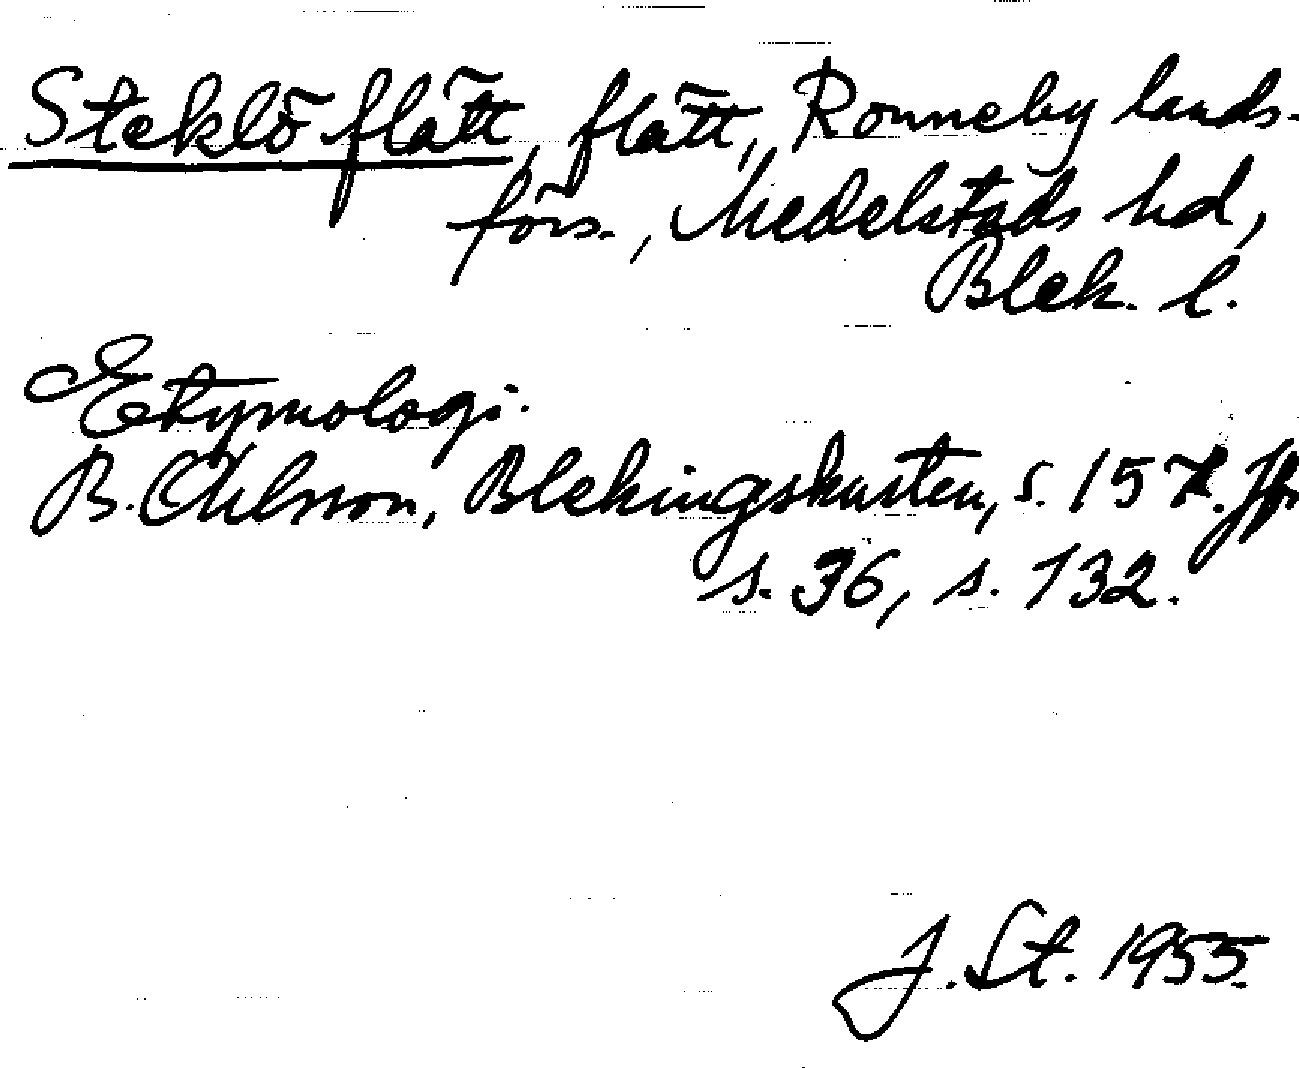 Steklö flätt, flätt, Ronneby lands-
förs., Medelstads hd,
Blek. l.
Etymologi.
B. Ohlsson, Blekingskusten, s. 157. Jfr
s. 36, s. 132.
J. St. 1955.